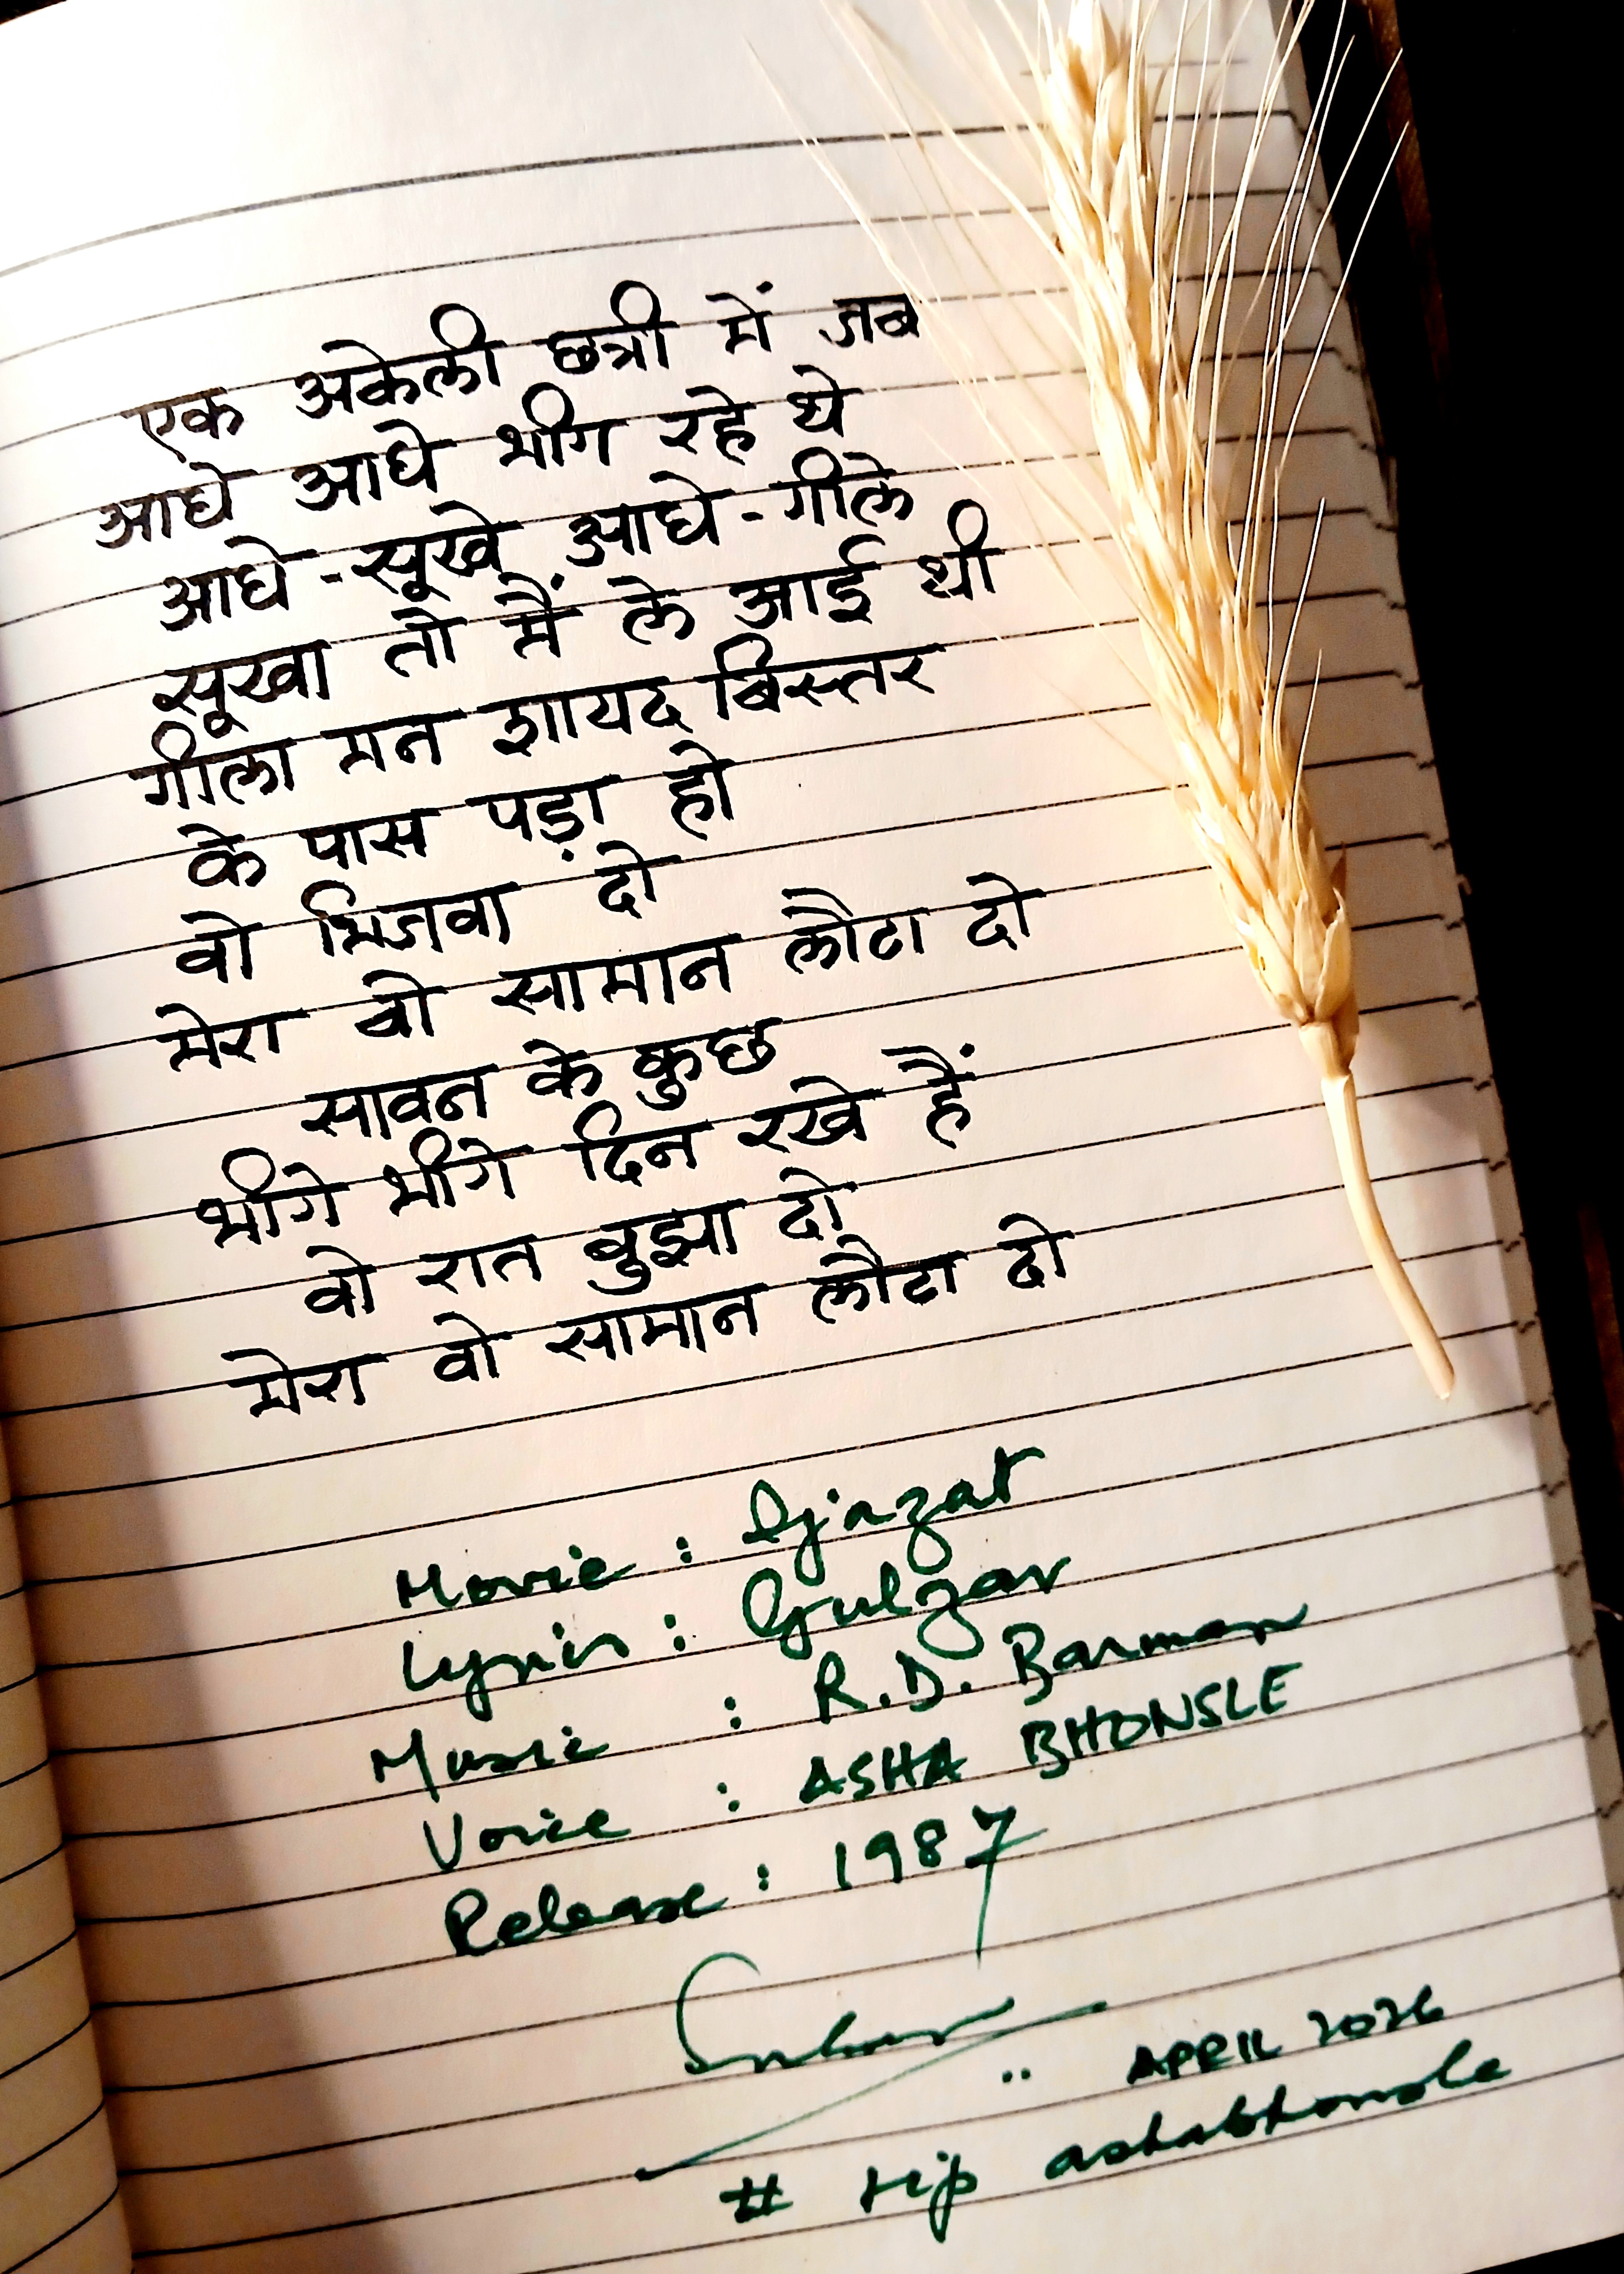 एक अकेली छत्री में जब
आधे आधे भीग रहे थे
आधे-सूखे आधे-गीले
सूखा तो मैं ले आई थी
गीला मन शायद बिस्तर
के पास पड़ा हो
वो भिजवा दो
मेरा वो सामान लौटा दो
सावन के कुछ
भीगे भीगे दिन रखे हैं
वो रात बुझा दो
मेरा वो सामान लौटा दो
Movie : Ijazat
Lyrics : Gulzar
Music : R.D. Barman
Voice : ASHA BHONSLE
Release : 1987
APRIL 2026
# rip ashabhonsle